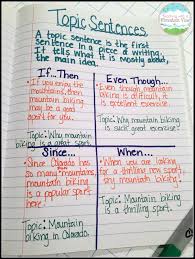 Topic Sentences
A topic sentence is the first
sentence in a piece of writing.
It tells what it is mostly about,
the main idea.
If...Then
If you enjoy
the mountains, then
mountain biking
may be a great
sport for you.
Topic: Why mountain
biking is a great sport.
Even Though...
Even though
mountain biking is
difficult, it is
excellent exercise.
Topic: Why mountain biking
is such great exercise.
Since...
Since Colorado
has so many
mountains, mountain
biking is a
popular sport
here.
Topic: Mountain
biking in Colorado.
When...
When you are looking
for a thrilling new sport,
try mountain biking!
Topic: Mountain biking
is a thrilling sport.